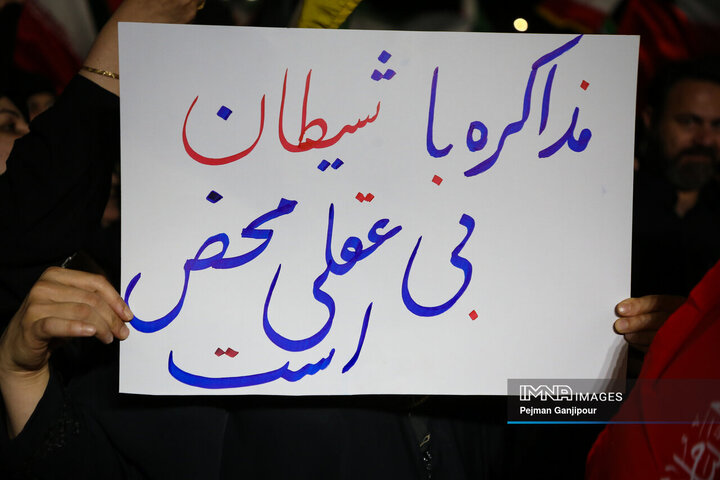 مذاکره با شیطان
بی عقلی محض
است
IMNA IMAGES
Pejman Ganjipour